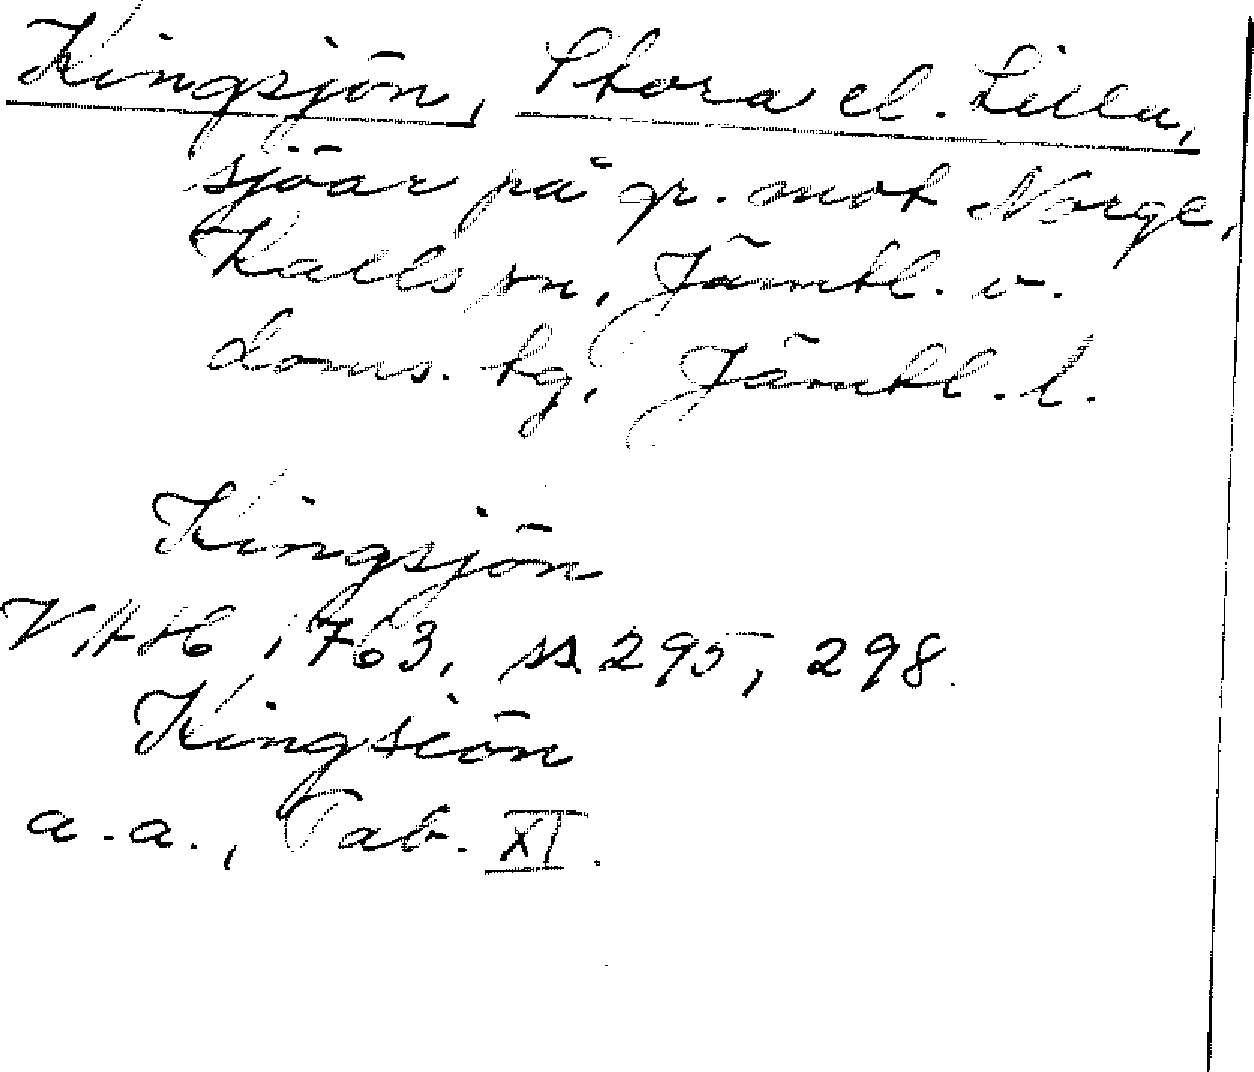 Kingsjön, Stora el. Lilla,
sjöar på gr. mot Norge,
Kalls sn, Jämtl. v.
doms. hg, Jämtl. l.
Kingsjön
VAHb 1763, ss. 295, 298.
Kingsiön
a.a., Tab. XI.